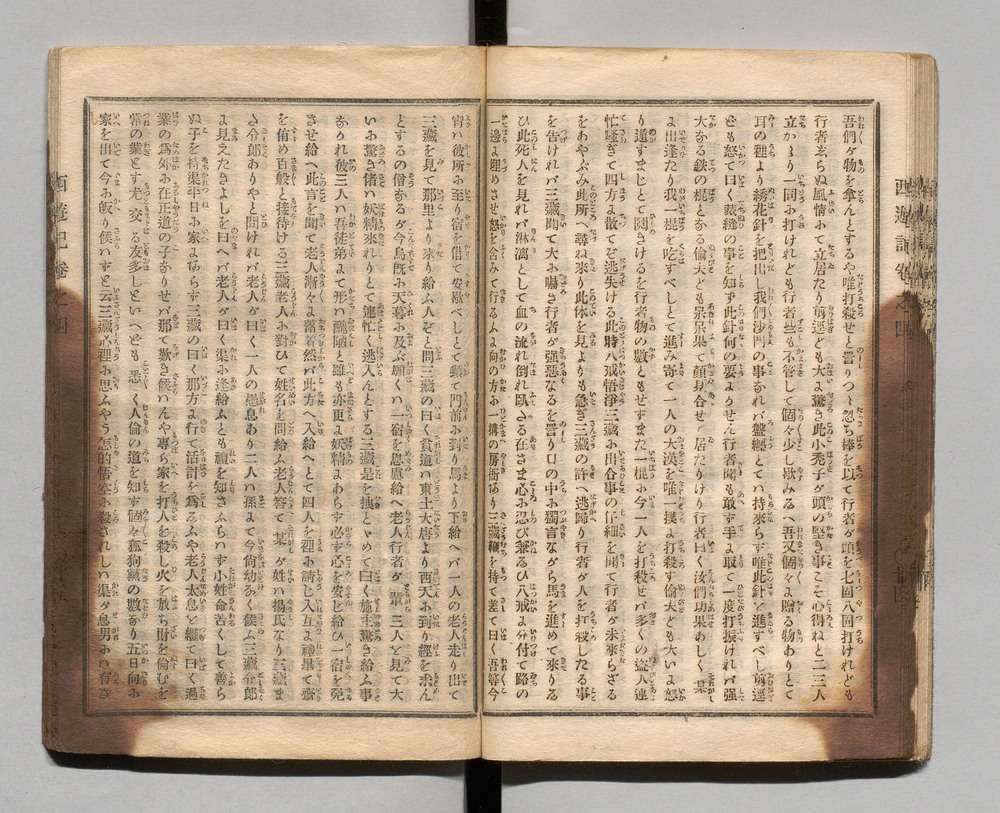 吾們が物を拿んとするや唯打殺せと詈りつゝ忽ち棒を以て行者が頭を七回八回打けれども
行者ゑらぬ風情おて立居たり剪逕ども大よ驚き此小禿子が頭の堅き事こそ心得ねと二三人
立かゝり一同お打けれども行者些も不管して個々少し歇みゐへ吾又個々よ贈る物ありとて
耳の裡より綉花針を把出し我們沙門の事なれバ盤纏とてハ持來らす唯此針を進すべし剪逕
ども怒て曰く裁縫の事を知ず此針何の要よりせん行者聞も敢す手よ取て一度打振けれバ强
大なる鉄の棍となる偷夫ども呆呆果て顔見合せ居たりけり行者曰く汝們功果あしく某
よ出逢たり我一棍を吃すべしとて進み寄て一人の大漢を唯一撲よ打殺す偷夫ども大いよ怒
り道すまじとて鬨きけるを行者物の數ともせずまた一棍お今一人を打殺せバ多くの盗人連
忙騷ぎて四方よ散てぞ逃失ける此時八戒悟淨三藏お出合事の仔細を聞て行者が未來らざる
をあやぶみ此所へ尋ね來り此体を見よりも急ぎ三藏の許へ逃歸り行者が人を打殺したる事
を告けれバ三藏聞て大お嚇き行者が强惡なるを詈り口の中お獨言ながら馬を進めて來りゐ
ひ此死人を見れバ淋漓として血の流れ倒れ臥さる在さま心お忍び兼ゐひ八戒よ分付て路の
一邊よ埋りさせ愁を含みて行ゐふよ向の方お一搆の房宿あり三藏鞭を持て差て曰く吾等今
宵ハ彼所お至り宿を借て安歇べしとて頓て門前お到り馬より下給へバ一人の老人走り出て
三藏を見て那里より來り給ふ人ぞと問三藏の曰く貧道ハ東土大唐より西天お到り經を求ん
とするの僧なるが今鳥旣お天暮お及ぶ願くハ一宿を恩慮給へ老人行者が輩三人を見て大
いお驚き偖ハ妖精來れりとて連忙く逃入んとする三藏是を拽とゞめて曰く施主驚き給ふ事
なかれ彼三人ハ吾徒弟よて形ハ醜陋と雖も亦更よ妖精よあらず必ず心を安じ給ひ一宿を死
させ給へ此言を聞て老人漸々よ落着然バ此方へ入給へとて四人を裡お請じ入互よ禮畢て齋
を侑め百般と接待ける三藏老人お對ひて姓名を問給ふ老人答て某が姓ハ楊氏なり三藏ま
さ令郎ありやと問けれバ老人が曰く一人の愚息あり二人ハ孫よて今尙幼なく候ふ三藏令郎
よ見えたきよしを曰へバ老人が曰く渠お逢給ふとも禮を知さふらハず小姓命苦くして善ら
ぬ子を持渠半日お家よはらず三藏の曰く那方よ行て活計を爲ゐふや老人太息を繼て曰く過
業の爲外お在正道の子なりせバ那て歎き候ハんや專ら家を打人を殺し火を放ち財を偷むを
常の業とす尤交ゐる友多しといへども悉く人倫の道を知す個々狐狗黨の數なり五日向お
家を出て今お皈り候ハすと云三藏心裡お思ふやう怎的悟空お殺されしハ渠が息男おハ有ま
西遊記卷之四
西遊記卷之四